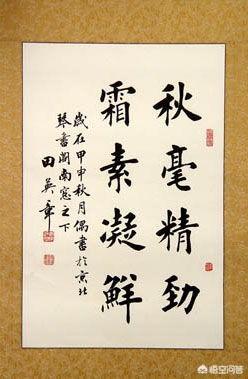 秋毫精勁
霜素凝鮮
歲在甲申秋月偶書於京北
琴書閣南窓之下
田英章
悟空问答